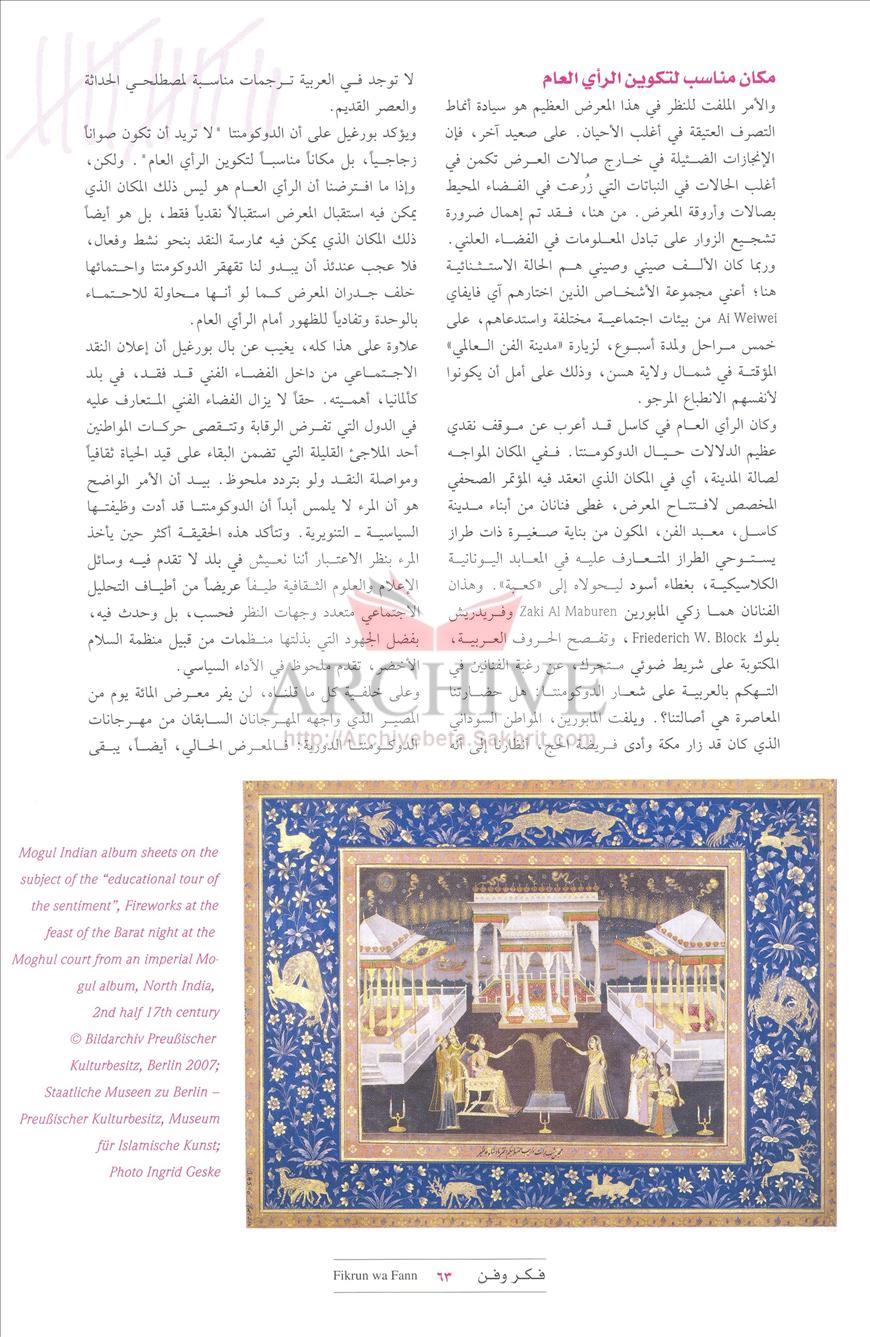 مكان مناسب لتكوين الرأي العام
والأمر الملفت للنظر في هذا المعرض العظيم هو سيادة أنماط
التصرف العتيقة في أغلب الأحيان. على صعيد آخر، فإن
الإنجازات الضئيلة في خارج صالات العرض تكمن في
أغلب الحالات في النباتات التي زُرعت في الفضاء المحيط
بصالات وأروقة المعرض. من هنا، فقد تم إهمال ضرورة
تشجيع الزوار على تبادل المعلومات في الفضاء العلني.
وربما كان الألف صيني وصيني هم الحالة الاستثنائية
هنا؛ أعني مجموعة الأشخاص الذين اختارهم آي فايفاي
Ai Weiwei من بيئات اجتماعية مختلفة واستدعاهم، على
خمس مراحل ولمدة أسبوع، لزيارة «مدينة الفن العالمي»
المؤقتة في شمال ولاية هسن، وذلك على أمل أن يكونوا
لأنفسهم الانطباع المرجو.
وكان الرأي العام في كاسل قد أعرب عن موقف نقدي
عظيم الدلالات حيال الدوكومنتا. ففي المكان المواجه
لصالة المدينة، أي في المكان الذي انعقد فيه المؤتمر الصحفي
المخصص لافتتاح المعرض، غطى فنانان من أبناء مدينة
كاسل، معبد الفن، المكون من بناية صغيرة ذات طراز
يستوحي الطراز المتعارف عليه في المعابد اليونانية
الكلاسيكية، بغطاء أسود ليحولاه إلى «كعبة». وهذان
الفنانان هما زكي المابورين Zaki Al Maburen وفريدريش
بلوك Friederich W. Block، وتفصح الحروف العربية،
المكتوبة على شريط ضوئي متحرك، عن رغبة الفنانين في
التهكم بالعربية على شعار الدوكومنتا: هل حضارتنا
المعاصرة هي أصالتنا؟. ويلفت المابورين، المواطن السوداني
الذي كان قد زار مكة وأدى فريضة الحج، أنظارنا إلى أنه
لا توجد في العربية ترجمات مناسبة لمصطلحي الحداثة
والعصر القديم.
ويؤكد بورغيل على أن الدوكومنتا "لا تريد أن تكون صواناً
زجاجياً، بل مكاناً مناسباً لتكوين الرأي العام". ولكن،
وإذا ما افترضنا أن الرأي العام هو ليس ذلك المكان الذي
يمكن فيه استقبال المعرض استقبالاً نقدياً فقط، بل هو أيضاً
ذلك المكان الذي يمكن فيه ممارسة النقد بنحو نشط وفعال،
فلا عجب عندئذ أن يبدو لنا تقهقر الدوكومنتا واحتمائها
خلف جدران المعرض كما لو أنها محاولة للاحتماء
بالوحدة وتفادياً للظهور أمام الرأي العام.
علاوة على هذا كله، يغيب عن بال بورغيل أن إعلان النقد
الاجتماعي من داخل الفضاء الفني قد فقد، في بلد
كألمانيا، أهميته. حقاً لا يزال الفضاء الفني المتعارف عليه
في الدول التي تفرض الرقابة وتتقصى حركات المواطنين
أحد الملاجئ القليلة التي تضمن البقاء على قيد الحياة ثقافياً
ومواصلة النقد ولو بتردد ملحوظ. بيد أن الأمر الواضح
هو أن المرء لا يلمس أبداً أن الدوكومنتا قد أدت وظيفتها
السياسية ـ التنويرية. وتتأكد هذه الحقيقة أكثر حين يأخذ
المرء بنظر الاعتبار أننا نعيش في بلد لا تقدم فيه وسائل
الإعلام والعلوم الثقافية طيفاً عريضاً من أطياف التحليل
الاجتماعي متعدد وجهات النظر فحسب، بل وحدث فيه،
بفضل الجهود التي بذلتها منظمات من قبيل منظمة السلام
الأخضر، تقدم ملحوظ في الأداء السياسي.
وعلى خلفية كل ما قلناه، لن يفر معرض المائة يوم من
المصير الذي واجهه المهرجانان السابقان من مهرجانات
الدوكومنتا الدورية: فالمعرض الحالي، أيضاً، يبقى
ARCHIVE
http://Archivebeta.Sakhrit.com
Mogul Indian album sheets on the
subject of the “educational tour of
the sentiment”, Fireworks at the
feast of the Barat night at the
Moghul court from an imperial Mo-
gul album, North India,
2nd half 17th century
© Bildarchiv Preußischer
Kulturbesitz, Berlin 2007;
Staatliche Museen zu Berlin –
Preußischer Kulturbesitz, Museum
für Islamische Kunst;
Photo Ingrid Geske
Fikrun wa Fann ٦٣ فكر وفن